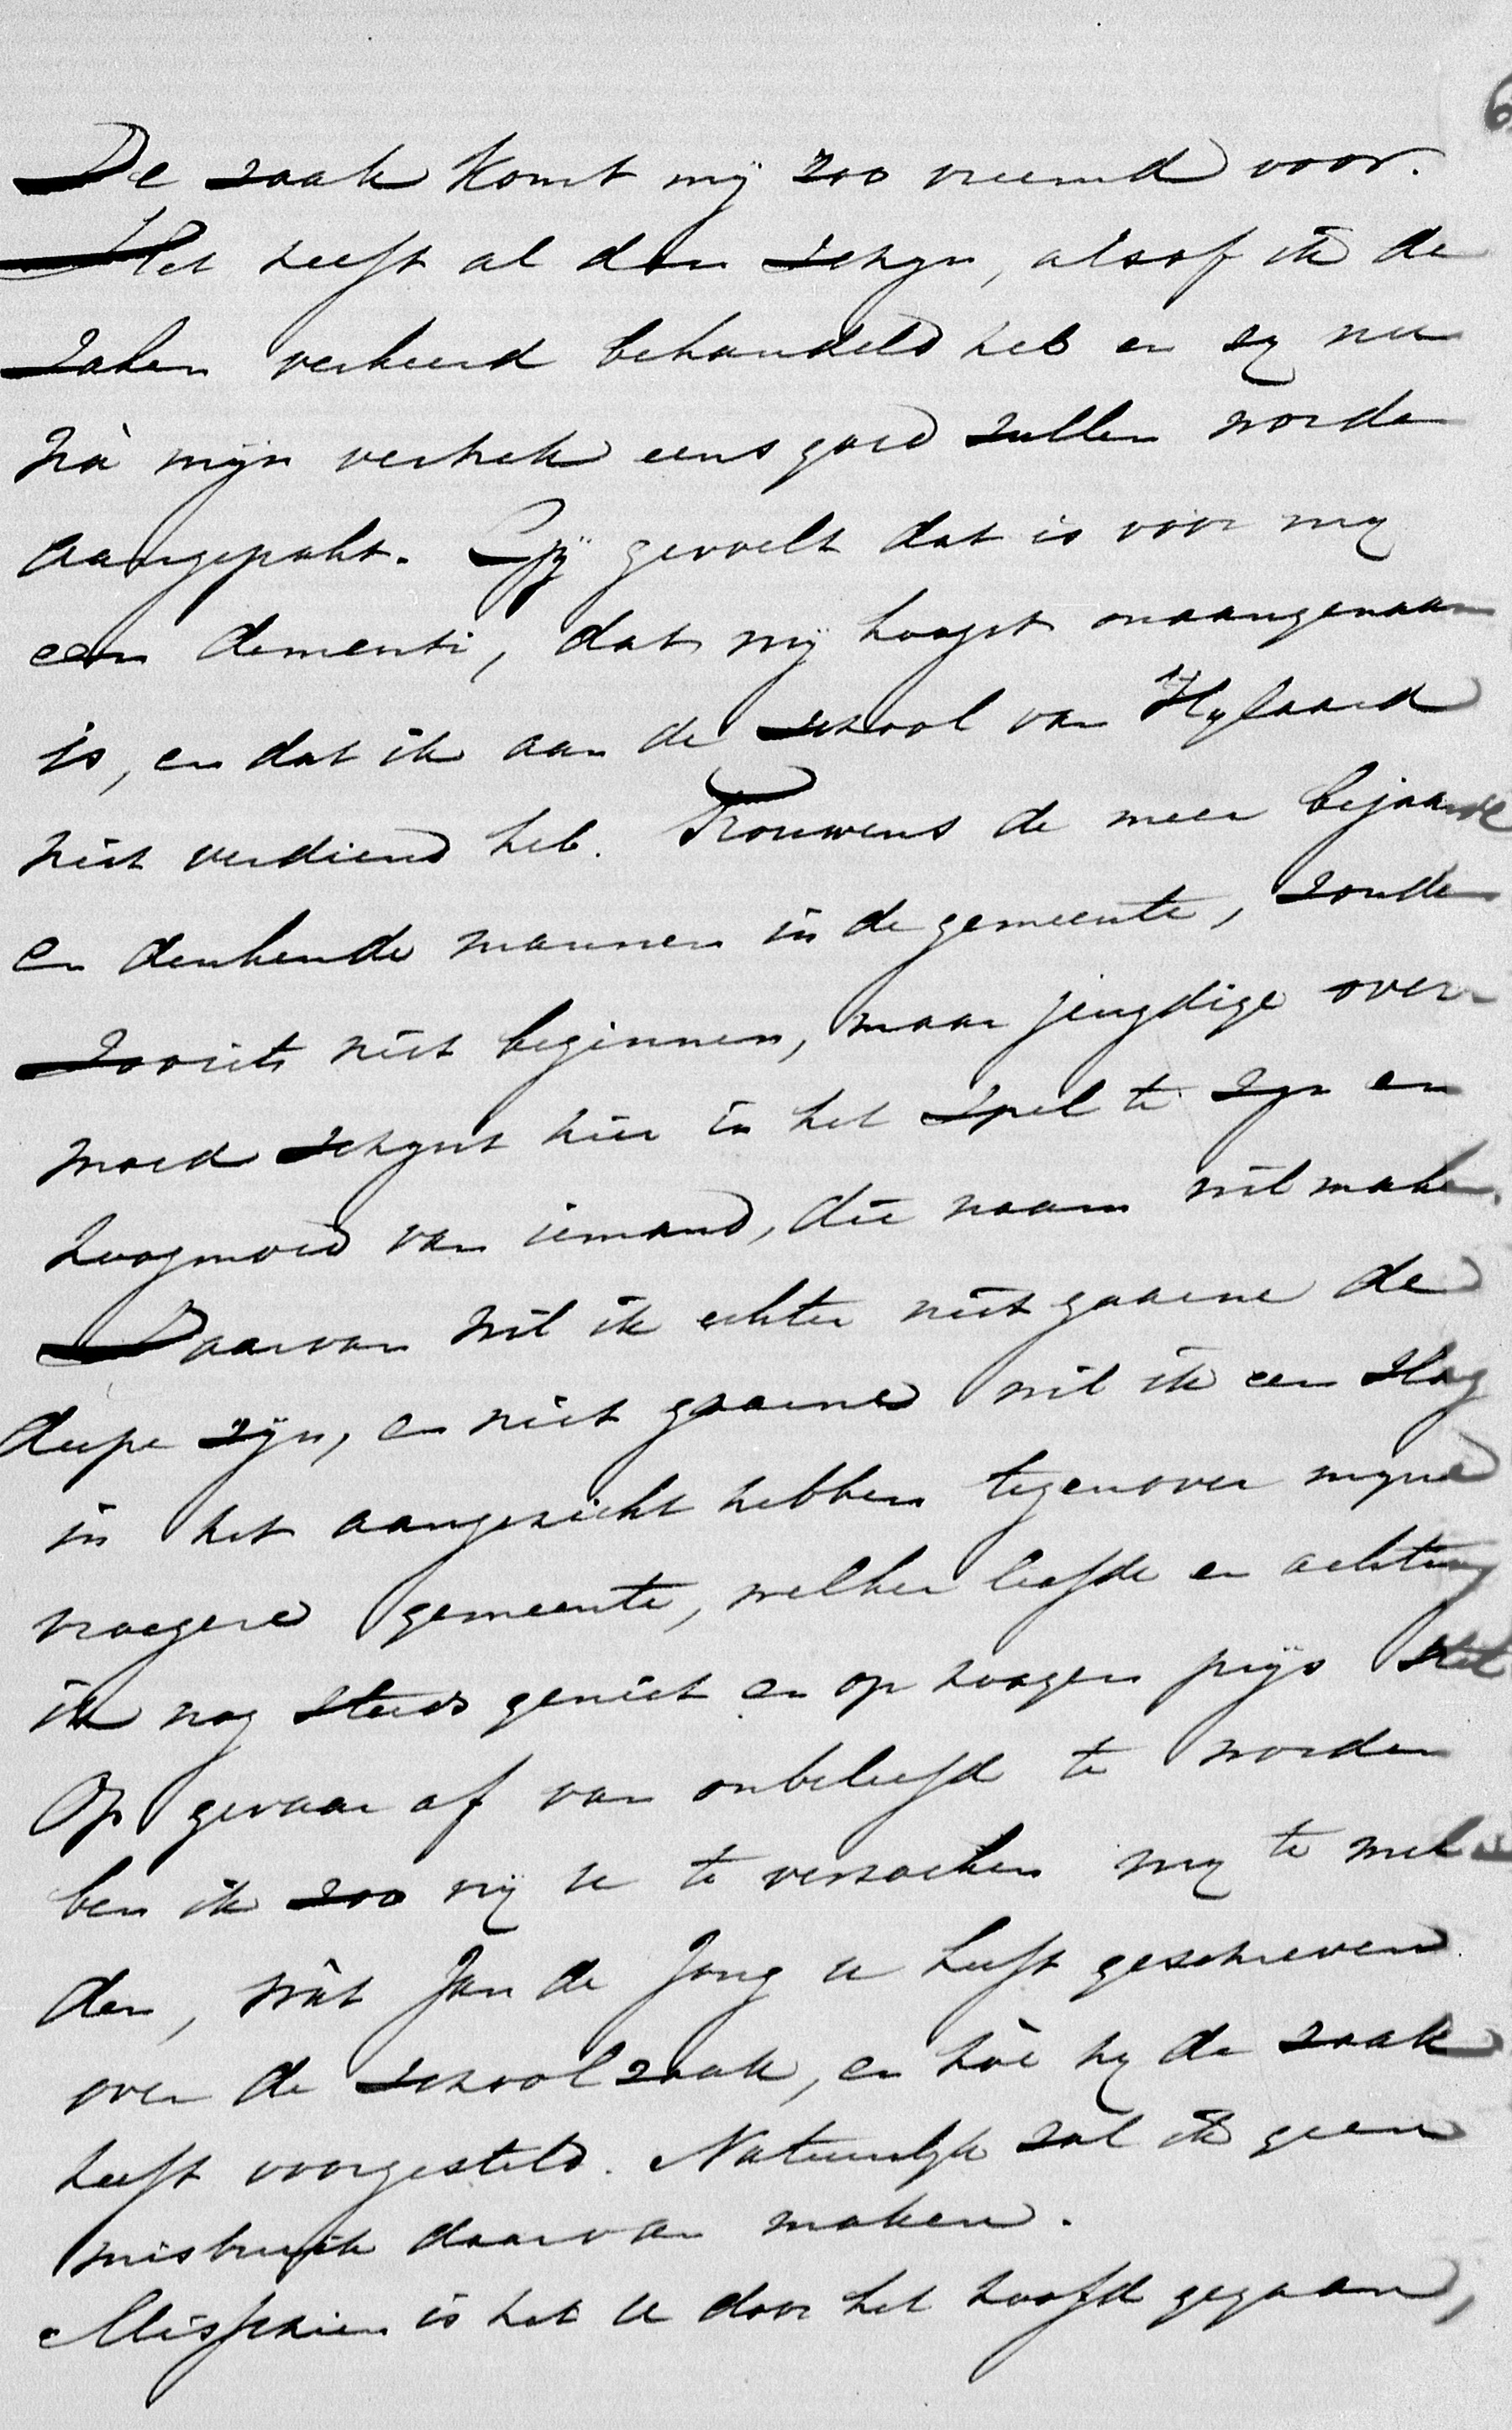 De zaak komt mij zoo vreemd voor.
Het heeft al den schijn, alsof ik de
zaken verkeerd behandeld heb en zij nu
nà mijn vertrek eens goed zullen worden
aangepakt. Gij gevoelt dat is voor mij
een dementi, dat mij hoogst onaangenaam
is, en dat ik aan de school van Hijlaard
niet verdiend heb. Trouwens de meer bejaarde
en denkende mannen in de gemeente, zouden
zooiets niet beginnen, maar jeugdige over-
moed schijnt hier in het spel te zijn en
hoogmoed van iemand, die naam wil maken.
Daarvan wil ik echter niet gaarne de
dupe zijn, en niet gaarne wil ik een slag
in het aangezicht hebben tegenover mijne
vroegere gemeente, welker liefde en achting
ik nog steeds geniet en op hoogen prijs stel
Op gevaar af van onbeleefd te worden
ben ik zoo vrij u te verzoeken mij te mel-
den, wàt Jan de Jong u heeft geschreven
over de schoolzaak, en hòe hij de zaak
heeft voorgesteld. Natuurlijk zal ik geen
misbruik daarvan maken.
Misschien is het u door het hoofd gegaan,